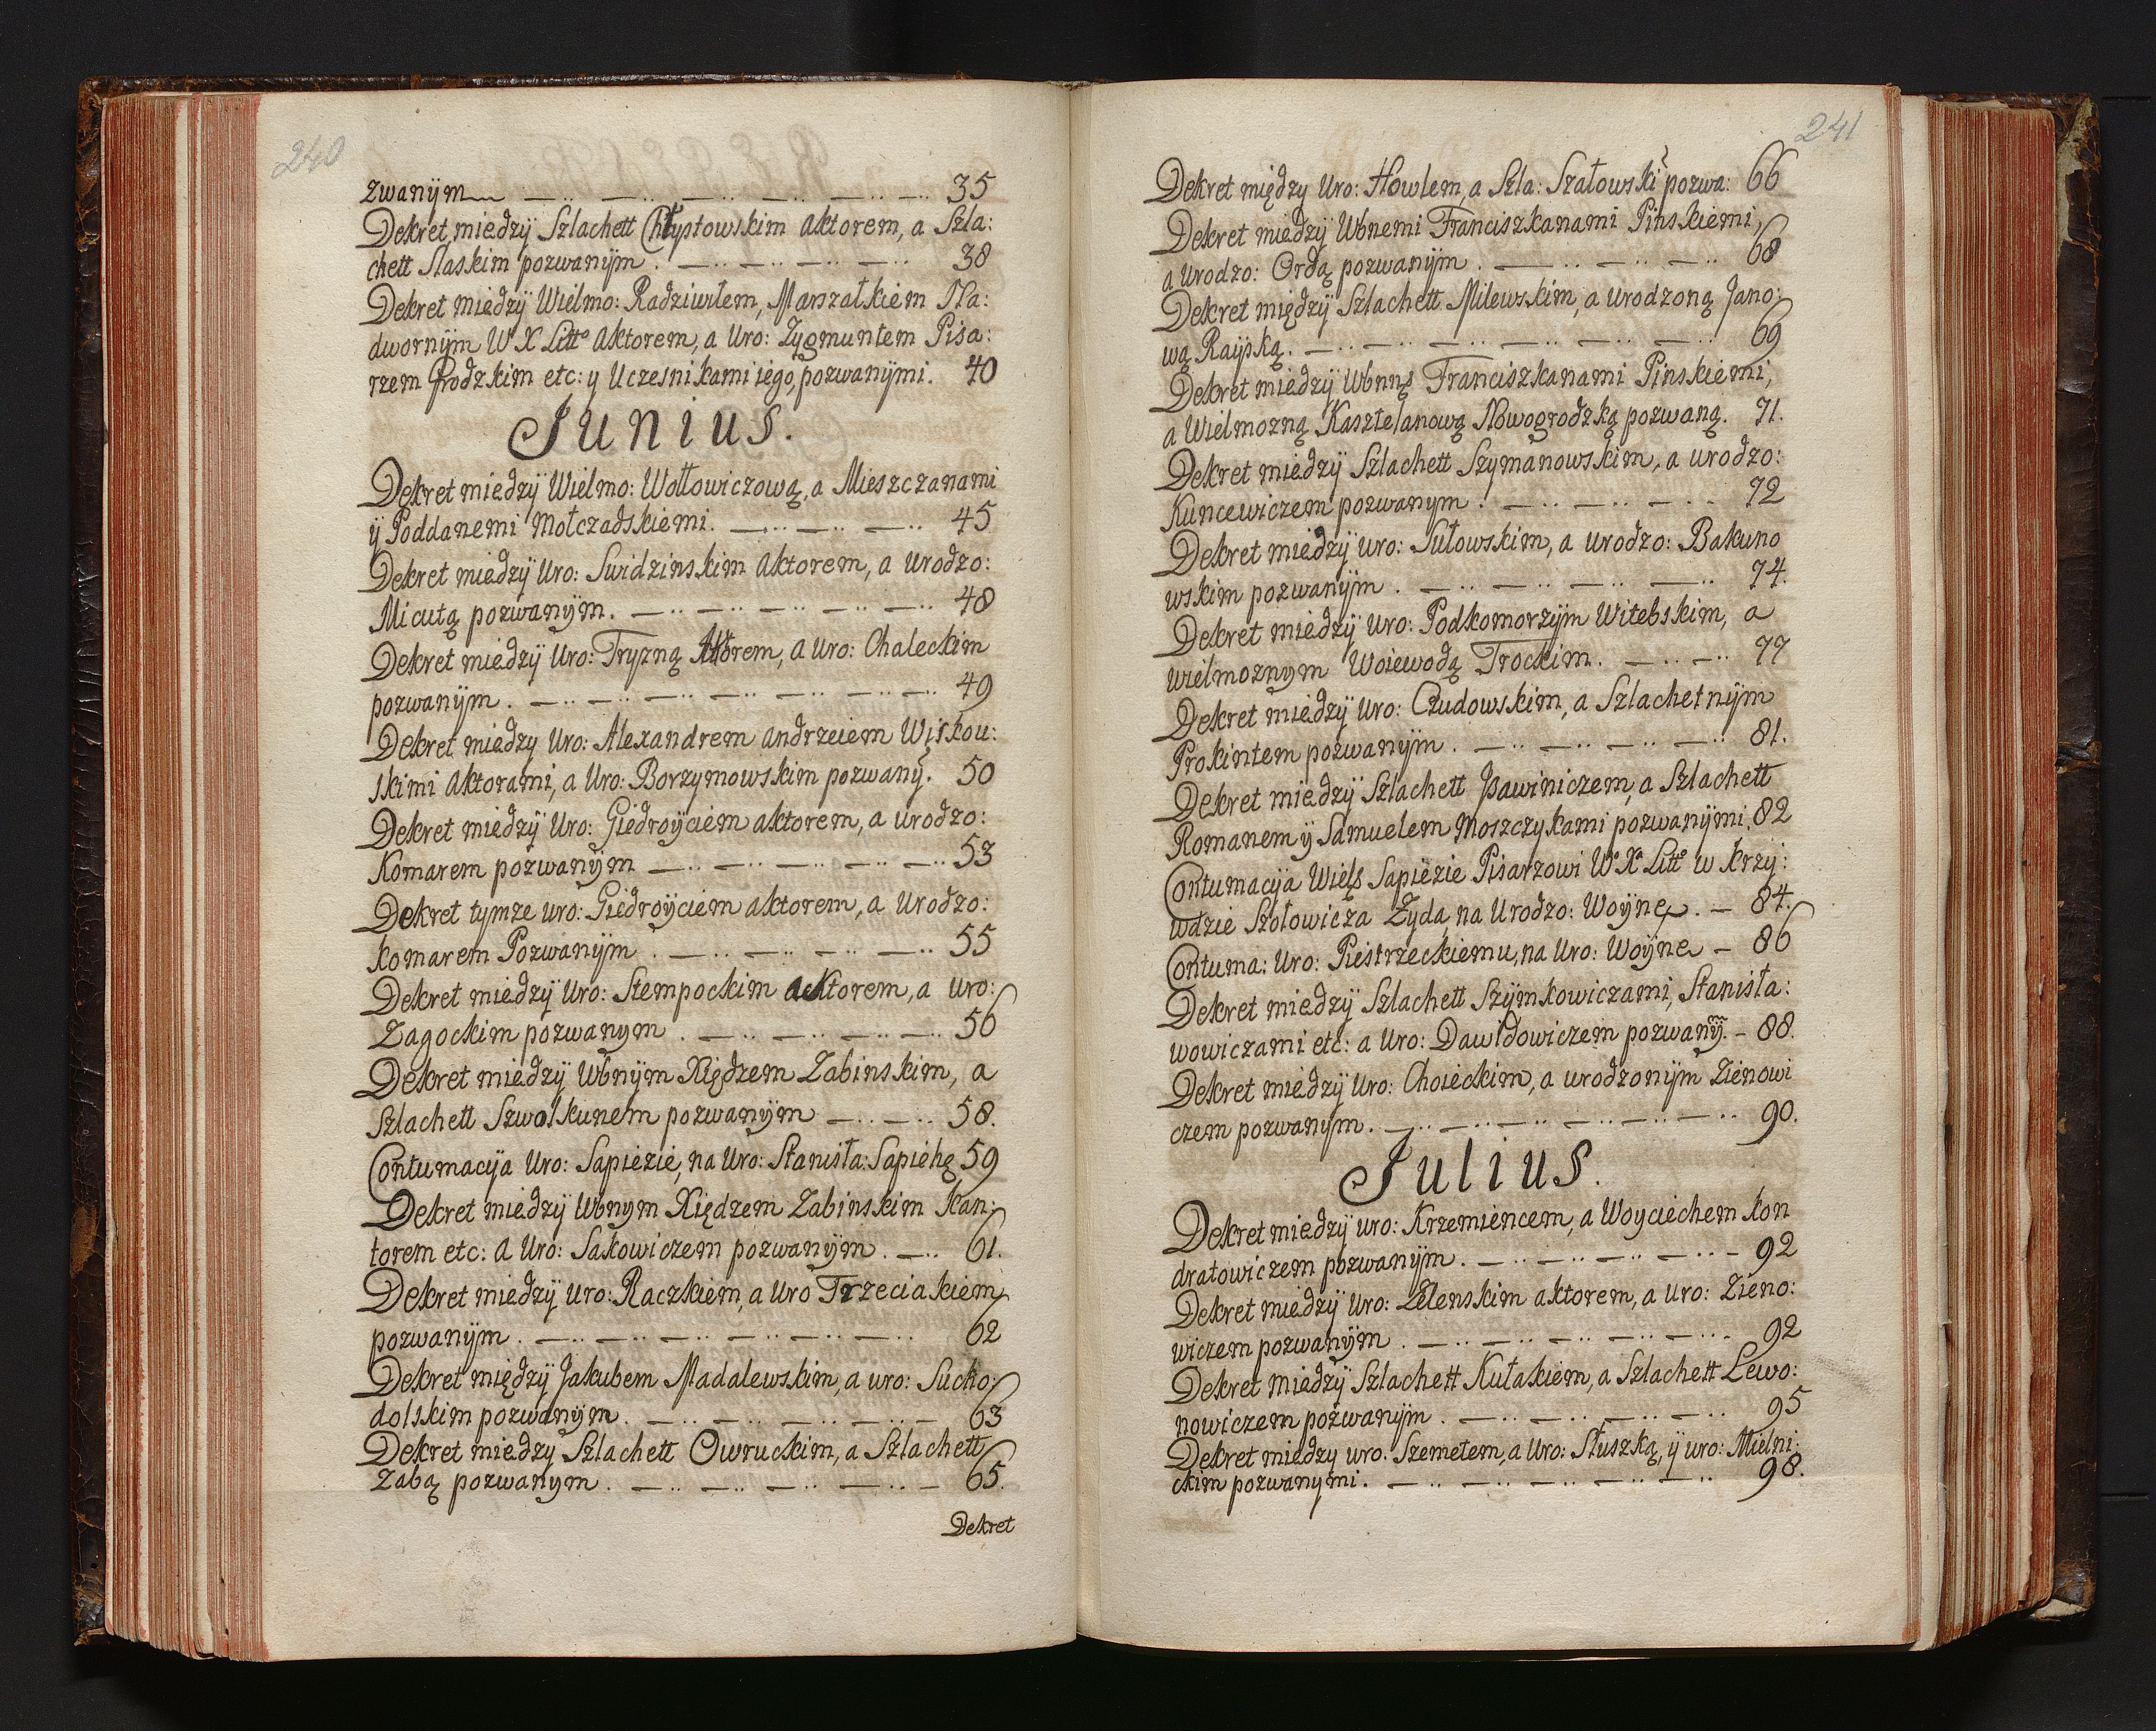 240
zwanÿm — .. — .. — .. — .. — .. 35
Dekret miedzÿ Szlachett Chłyptowskim Aktorem, a Szla:
chett Slaskim pozwanÿm . — .. — .. — .. — .. 38
Dekret miedzÿ Wielmo: Radziwiłem, Marszałkiem Na:
dwornÿm W X Litt° Aktorem, a Uro: Zygmuntem Pisa:
rzem Grodzkim etc: y Uczesnikami iego, pozwanÿmi. 40
Junius.
Dekret miedzÿ Wielmo: Wołłowiczową, a Mieszczanami
ÿ Poddanemi Mołczadskiemi. — .. — .. — .. 45
Dekret miedzÿ Uro: Swidzinskim Aktorem, a Urodzo:
Micutą pozwanÿm. — .. — .. — .. — .. — .. 48
Dekret miedzÿ Uro: Tryzną Aktorem, a Uro: Chaleckim
pozwanÿm . — .. — .. — .. — .. — .. — .. 49
Dekret miedzy Uro: Alexandrem Andrzeiem Wiskou:
skimi Aktorami, a Uro: Borzymowskim pozwanÿ. 50
Dekret miedzÿ Uro: Giedroÿciem aktorem, a urodzo:
Komarem pozwanÿm — .. — .. — .. — .. — .. 53
Dekret tymze uro: Giedroÿciem aktorem, a Urodzo:
komarem Pozwanÿm . — .. — .. — .. — .. 55
Dekret miedzÿ Uro: Stempockim acKtorem, a uro:
Zagockim pozwanym . — .. — .. — .. — .. 56
Dekret miedzÿ Wbnÿm Xiędzem Zabinskim, a
Szlachett Szwolkunem pozwanÿm — .. — .. 58.
Contumacÿa Uro: Sapiezie, na Uro: Stanisła: Sapiehę 59
Dekret miedzÿ Wbnym Xiędzem Zabinskim Kan:
torem etc: a Uro: Sakowiczem pozwanÿm . — .. 61.
Dekret miedzÿ uro: Raczkiem, a Uro Trzeciakiem
pozwanÿm . — .. — .. — .. — .. — .. — 62
Dekret między Jakubem Madalewskim, a uro: Sucho:
dolskim pozwanÿm . — .. — .. — .. — .. — 63
Dekret miedzy Szlachett Owruckim, a Szlachett
Zabą pozwanym . — .. — .. — .. — .. — 65.
Dekret
241
Dekret między Uro: Howlem, a Szla: Szałowski pozwa: 66
Dekret miedzÿ Wbnemi Franciszkanami Pinskiemi,
a Urodzo: Ordą pozwanÿm . — .. — .. — .. 68
Dekret międzÿ Szlachett Milewskim, a Urodzoną Jano:
wą Raÿską. — .. — .. — .. — .. — .. — .. 69
Dekret miedzÿ Wbnnę Franciszkanami Pinskiemi,
a Wielmozną Kasztelanową Nowogrodzką pozwaną. 71.
Dekret miedzÿ Szlachett Szymanowskim, a urodzo:
Kuncewiczem pozwanym . — .. — .. — .. 72
Dekret miedzÿ uro: Sułowskim, a urodzo: Bakuno
wskim pozwanÿm . — .. — .. — .. — .. 74.
Dekret miedzÿ uro: Podkomorzÿm Witebskim, a
wielmoznym Woiewodą Trockim. — .. — .. 77
Dekret miedzÿ Uro: Czudowskim, a Szlachetnÿm
Prokintem pozwanÿm . — .. — .. — .. — .. 81.
Dekret miedzÿ Szlachett Jsawiniczem, a Szlachett
Romanem ÿ Samuelem Moszczykami pozwanÿmi. 82
Contumacÿa Wielę Sapiezie Pisarzowi W° X° Litt° w krzÿ:
wdzie Szołowicza Zyda, na Urodzo: Woÿnę. — 84.
Contuma: Uro: Piestrzeckiemu, na Uro: Woÿne — 86
Dekret miedzÿ Szlachett Szÿmkowiczami, Stanisła:
wowiczami etc: a Uro: Dawidowiczem pozwanÿ. — 88.
Dekret miedzÿ Uro: Choieckim, a urodzonÿm Zienowi
czem pozwanÿm. — .. — .. — .. — .. — .. — .. 90.
Julius.
Dekret miedzÿ uro: Krzemiencem, a Woyciechem kon
dratowiczem pozwanÿm. — .. — .. — .. — .. — 92
Dekret miedzÿ Uro: Zelenskim aktorem, a Uro: Zieno:
wiczem pozwanÿm . — .. — .. — .. — .. — .. 92
Dekret miedzÿ Szlachett Kułakiem, a Szlachett Lewo:
nowiczem pozwanÿm . — .. — .. — .. — .. 95
Dekret miedzy uro: Szemetem, a Uro: Słuszką, ÿ uro: Mielni:
ckim pozwanÿmi. — .. — .. — .. — .. — .. 98.